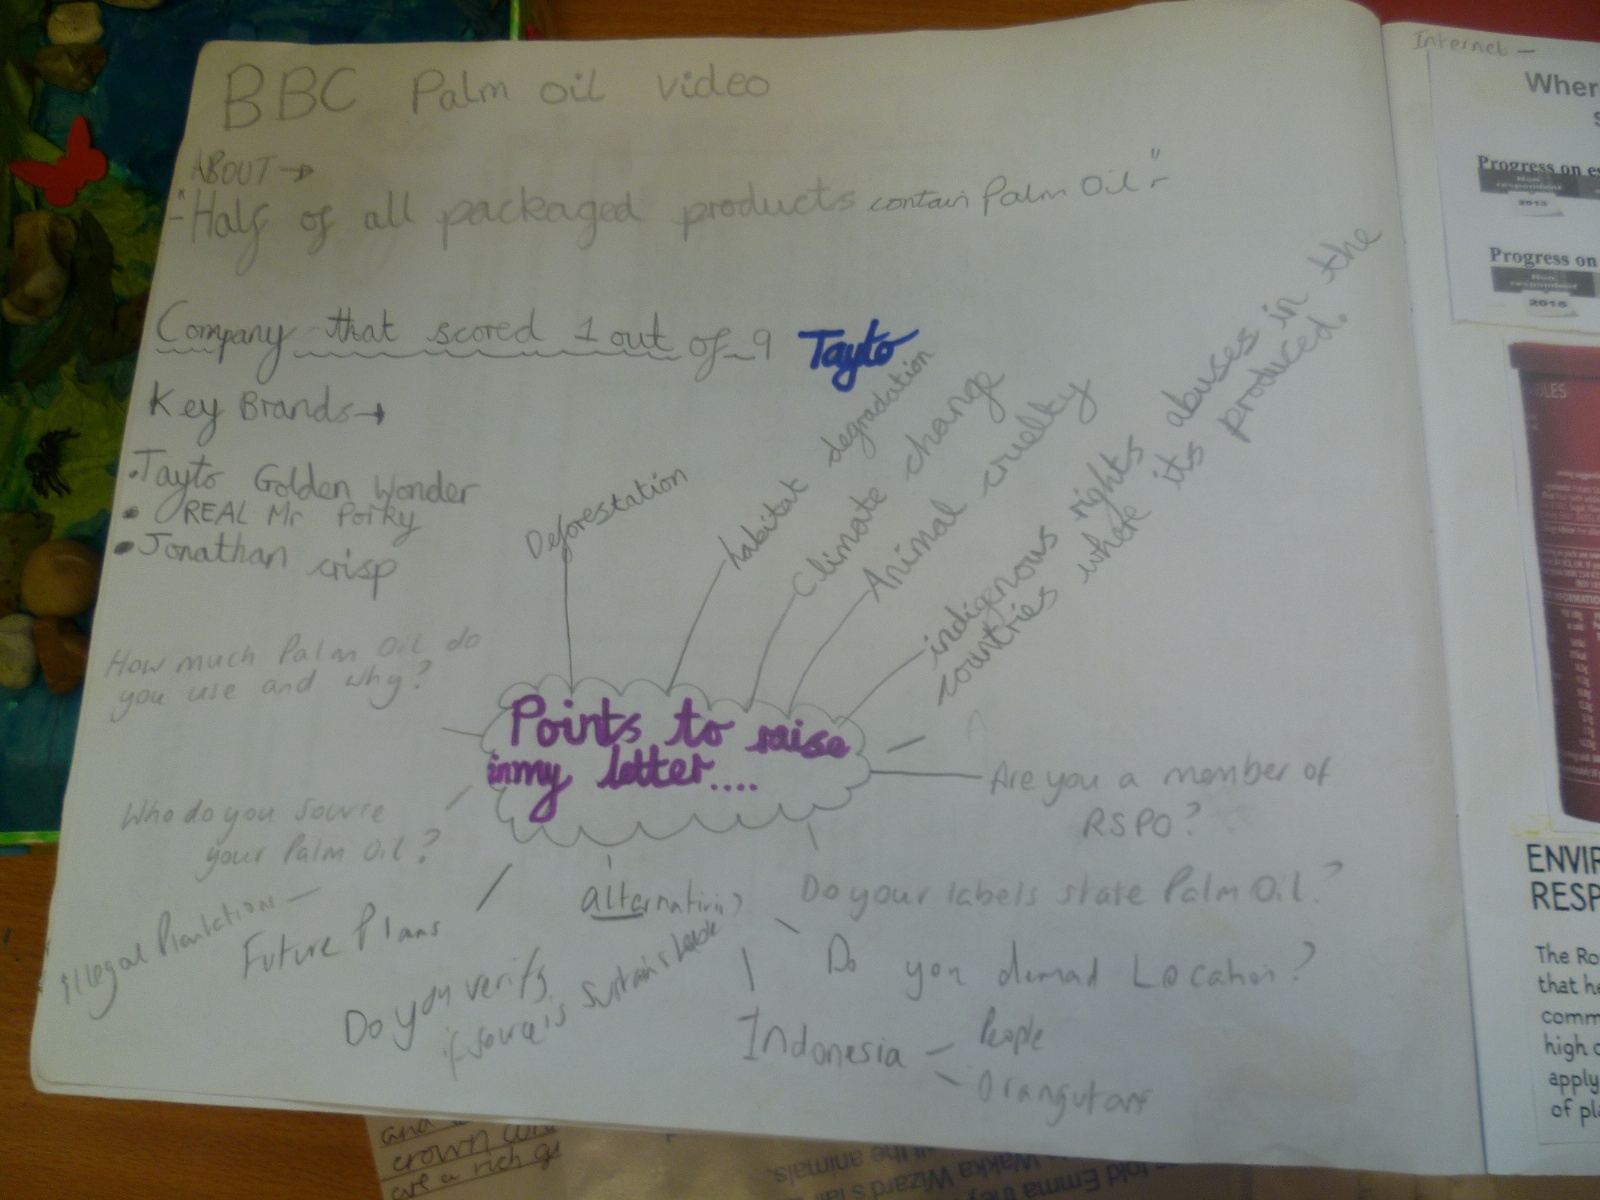 BBC Palm oil video
ABOUT →
"- Half of all packaged products contain Palm Oil - "
Company that scored 1 out of 9 Tayto
Key Brands →
• Tayto Golden Wonder
• REAL Mr Porky
• Jonathan crisp
Deforestation
habitat degradation
Climate change
Animal cruelty
indigenous rights abuses in the
countries where its produced.
How much Palm Oil do
you use and why?
Points to raise
in my letter....
Are you a member of
RSPO?
Who do you source
your Palm Oil?
Do your labels state Palm Oil?
Illegal Plantation
Future Plans
Do you verify
if source is sustainable
Do you demad Location?
Indonesia
People
Orangutans
Internet -
Wher
Progress on es
2013
Progress on
ULES
ENVIR
RESP
The Ro
that he
comm
high c
apply
of pl
and
crown
are a rich
the animals.
Wakka Wizard's
told Emma they